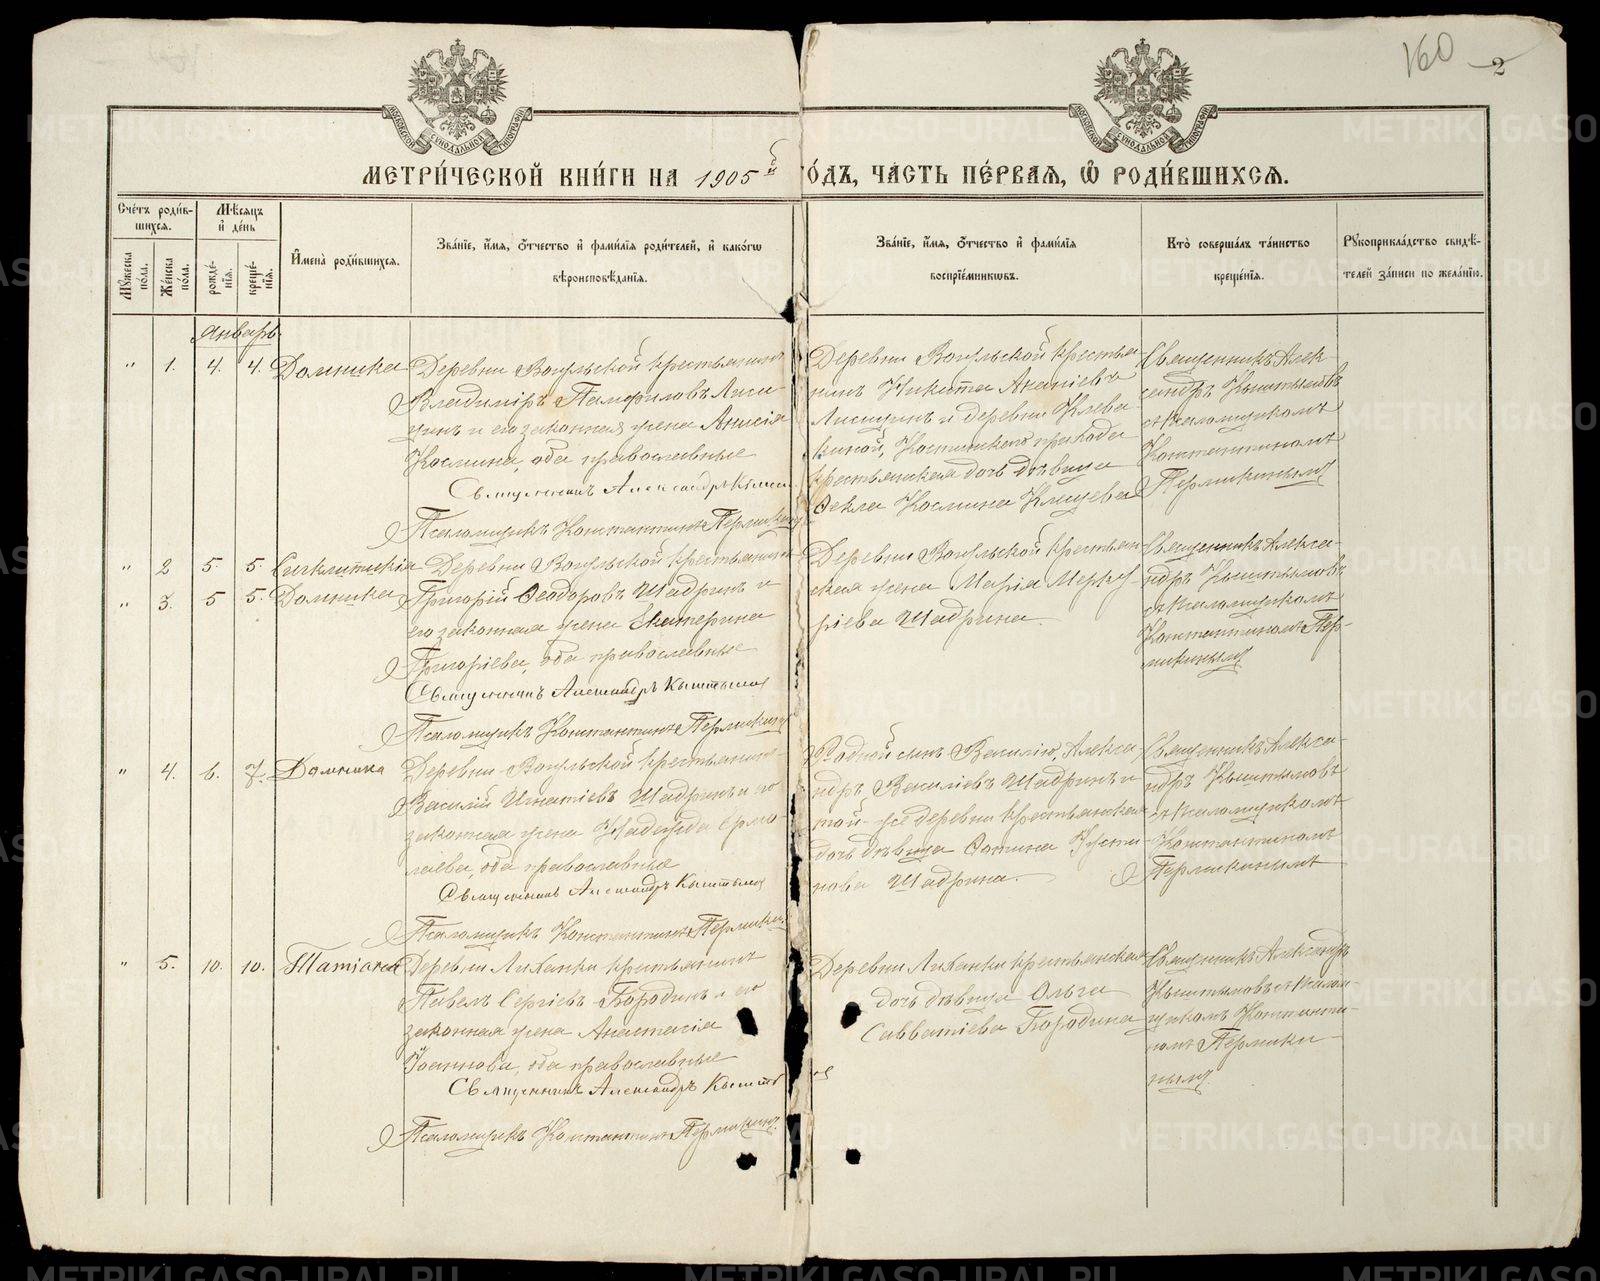 160
2
МОСКОВСКОЙ СѴНОДАЛЬНОЙ ТИПОГРАФІИ
МОСКОВСКОЙ СѴНОДАЛЬНОЙ ТИПОГРАФІИ
МЕТРИ́ЧЕСКОЙ КНИ́ГИ НА 1905й ГО́ДЪ, ЧА́СТЬ ПЕ́РВАѦ, Ѡ РОДИ́ВШИХСѦ.
Сче́тъ роди́в-
шихся.
Мѣ́сяцъ
и҆ де́нь
Мꙋжеска по́ла.
Же́нска по́ла.
рожде́-
нїѧ.
креще́-
нїѧ.
И҆мена̀ роди́вшихся.
Зва́нїе, и҆́мѧ, о҆́тчество и҆ фами́лїѧ роди́телей, и҆ како́гѡ
вѣроисповѣ́данїѧ.
Зва́нїе, и҆́мѧ, о҆́тчество и҆ фами́лїѧ
воспрїе́мникѡвъ.
Кто̀ соверша́лъ та́инство
креще́нїѧ.
Рꙋкоприкла́дство свидѣ́-
телей за́писи по жела́нїю.
Январь
" 1. 4. 4. Домника
Деревни Вогульской крестьянинъ
Владиміръ Памфиловъ Лиси-
цинъ и его законная жена Анисія
Космина, оба православные
Священникъ Александръ Кышты
Псаломщикъ Константинъ Пермикинъ
Деревни Вогульской крестья
нинъ Никита Ананіевъ
Лисицинъ и деревни Клева
киной, прихода
крестьянская дочь дѣвица
Ѳекла Космина
Священникъ Алек-
сандръ Кыштымовъ
съ псаломщикомъ
Константиномъ
Пермикинымъ
" 2 5 5. Синклитикія
" 3. 5 5. Домника
Деревни Вогульской крестьянинъ
Григорій Ѳеодоровъ Шадринъ и
его законная жена Екатерина
Григоріева, оба православные
Священникъ Александръ Кыштымов
Псаломщикъ Константинъ Пермикинъ
Деревни Вогульской крестьян
ская жена Марія Мерку
ріева Шадрина.
Священникъ Алекса-
ндръ Кыштымовъ
съ псаломщикомъ
Константиномъ Пер-
микинымъ
" 4. 6. 7. Домника
Деревни Вогульской крестьянинъ
Василій Игнатіевъ Шадринъ и его
законная жена Надежда Ермо-
лаева, оба православные
Священникъ Александръ Кыштымов
Псаломщикъ Константинъ Пермикин
Родной сынъ Василію, Алекса
ндръ Василіевъ Шадринъ и
той-же деревни крестьянская
дочь дѣвица Фотина Усти-
нова Шадрина.
Священникъ Алекса-
ндръ Кыштымовъ
съ псаломщикомъ
Константиномъ
Пермикинымъ
" 5. 10. 10. Татіана
Деревни Лиханки крестьянинъ
Павелъ Сергіевъ Бородинъ и его
законная жена Анастасія
Іоаннова, оба православные
Священникъ Александръ Кыштымов
Псаломщикъ Константинъ Пермикинъ.
Деревни Лиханки крестьянская
дочь дѣвица Ольга
Савватіева Бородина
Священникъ Александръ
Кыштымовъ съ псалом-
щикомъ Константи-
номъ Пермики-
нымъ
METRIKI.GASO-URAL.RU